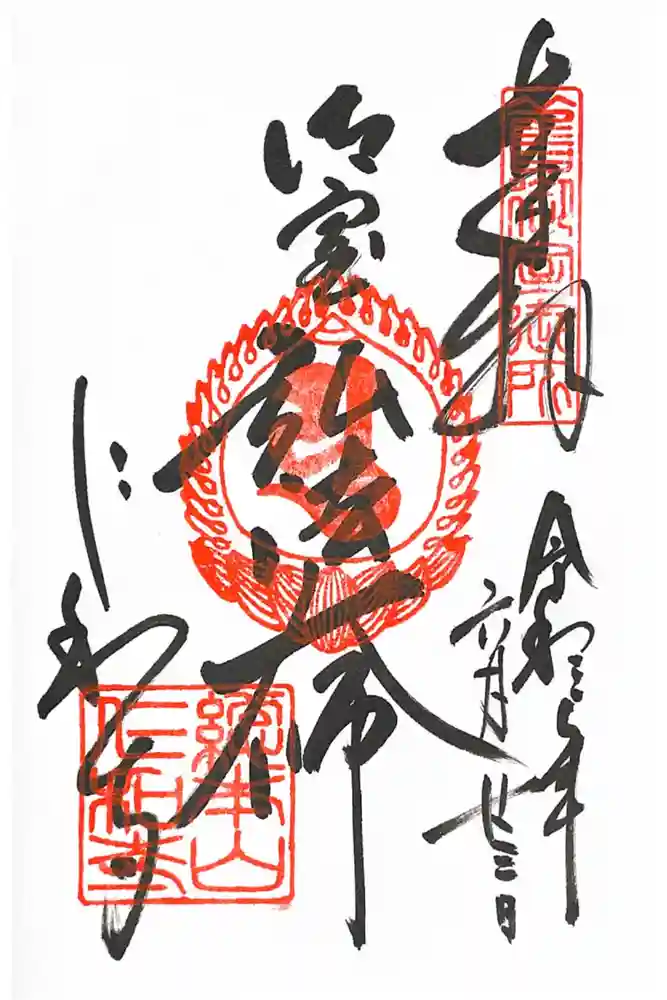 奉拝
舊御室御所
令和三年
六月廿三日
御室
弘法大師
仁和寺
總本山
仁和寺